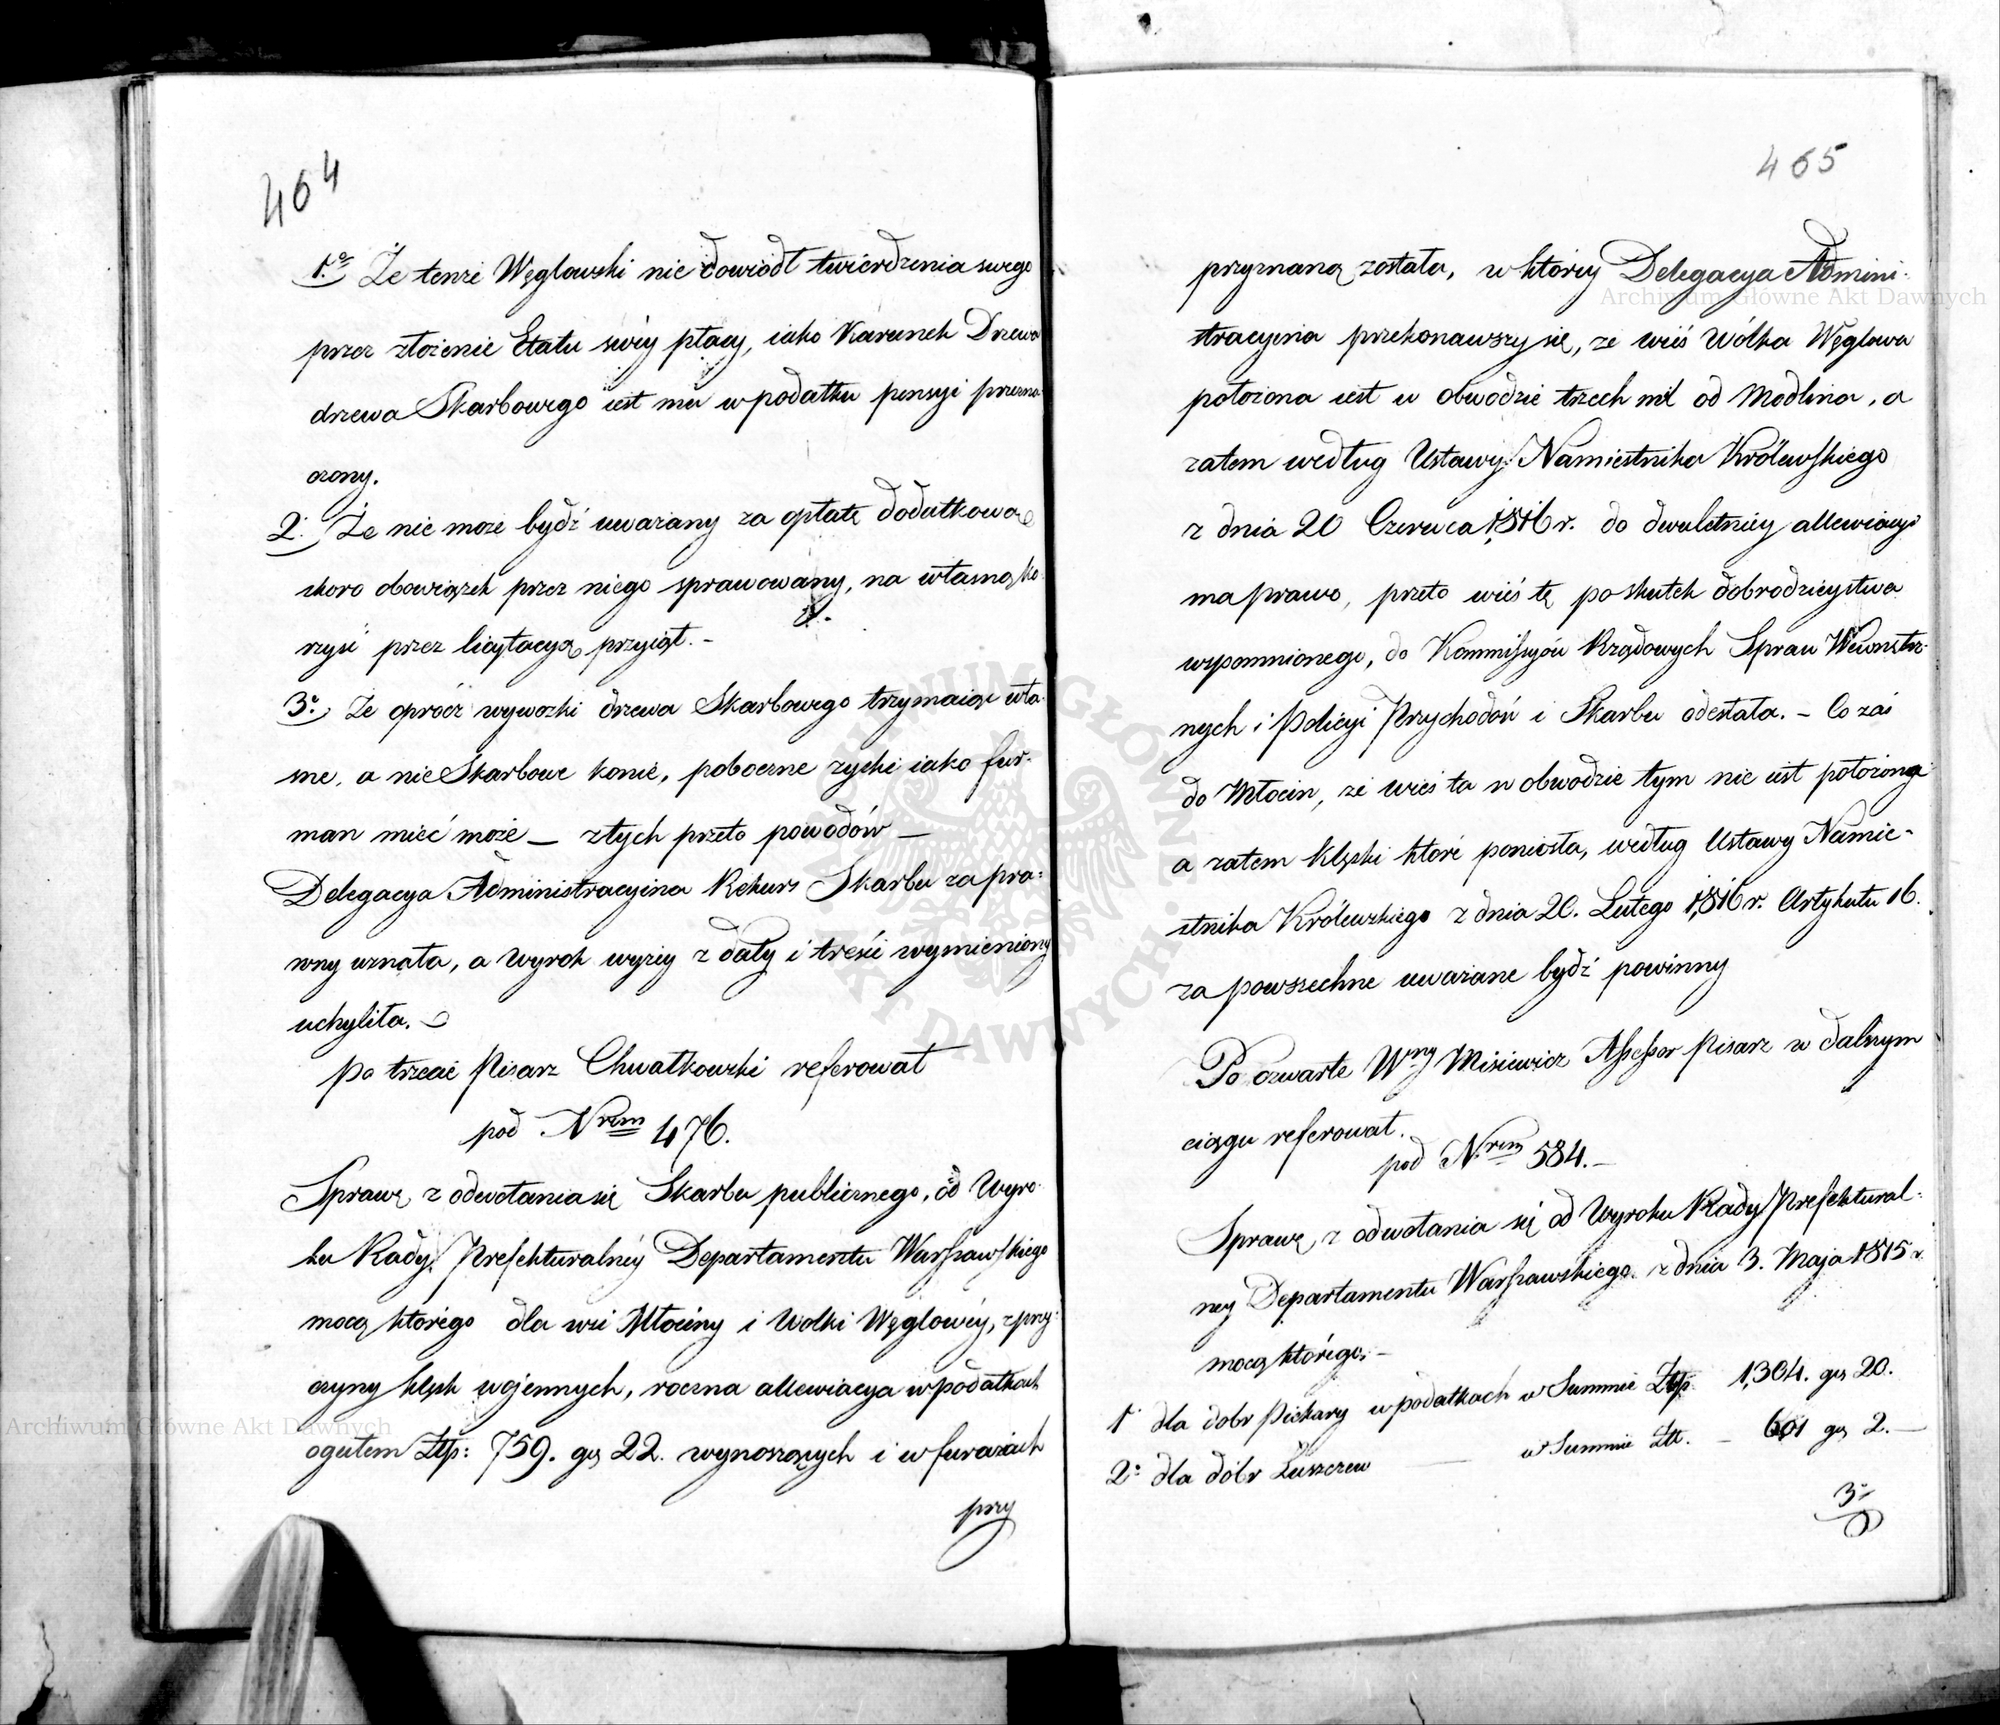 464
1.º Że tenże Węglowski nie dowiódł twierdzenia swego
przez złożenie Etatu swéy płacy, iako Karunek Drzewa
drzewa Skarbowego iest mu w podatku pensyi przezna
czony.
2. Że nie może bydź uważany za opłatę dodatkową
skoro obowiązek przez niego sprawowany, na własną ko
rzyść przez licytacyą przyiął. –
3.º Że oprócz wywozki drzewa Skarbowego trzymaiąc wła-
sne, a nie Skarbowe konie, poboczne zyski iako fur-
man mieć może — z tych przeto powodów —
Delegacya Administracyina Rekurs Skarbu za pra-
wny uznała, a Wyrok wyżéy z daty i treści wymieniony
uchyliła.
Po trzecie Pisarz Chwałkowski referował
pod Nrem 476.
Sprawę z odwołania się Skarbu publicznego, od Wyro-
ku Rady Prefekturalnéy Departamentu Warszawskiego
mocą którego dla wsi Młociny i Wolki Węglowéy, z przy-
czyny klęsk wojennych, roczna allewiacya w podatkach
ogułem Złp: 759. gr 22. wynoszących i w furażach
przy
465
przyznaną została, w któréy Delegacya Admini-
stracyina przekonawszy się, że wieś Wólka Węglowa
położona iest w obwodzie trzech mil od Modlina, a
zatem według Ustawy Namiestnika Królewskiego
z dnia 20 Czerwca 1816 r. do dwuletniéy allewiacyi
ma prawo, przeto wieś tę po skutek dobrodzieystwa
wspomnionego, do Kommissyów Rządowych Spraw Wewnętrz-
nych i Policyi Przychodów i Skarbu odesłała. – Co zaś
do Młocin, że wieś ta w obwodzie tym nie iest położoną
a zatem klęski które poniosła, według Ustawy Namie-
stnika Królewskiego z dnia 20. Lutego 1816 r. Artykułu 16.
za powszechne uważane bydź powinny
Po czwarte Wny Misiewicz Assessor Pisarz w dalszym
ciągu referował.
pod Nrem 584. –
Sprawę z odwołania się od Wyroku Rady Prefektural-
ney Departamentu Warszawskiego z dnia 3. Maja 1815 r.
mocą którego. –
1º dla dobr Piekary w podatkach w Summie Złp. 1,304. gr 20.
2º dla dóbr Łuszczew — w Summie Złł. — 601 gr 2. —
3º